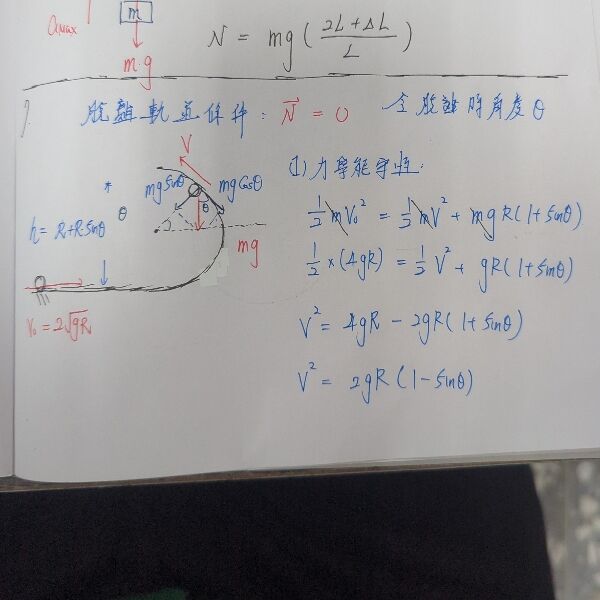 amax
m
m.g
N = mg ( 2L+ΔL / L )
7.
脫離軌道條件: N⃗ = 0 令脫離時角度θ
(1)力學能守恆:
V
mg sinθ
mg cosθ
θ
θ
mg
h = R+R sinθ
V₀ = 2√gR
½mV₀² = ½mV² + mgR(1+sinθ)
½×(4gR) = ½V² + gR(1+sinθ)
V² = 4gR − 2gR(1+sinθ)
V² = 2gR(1−sinθ)